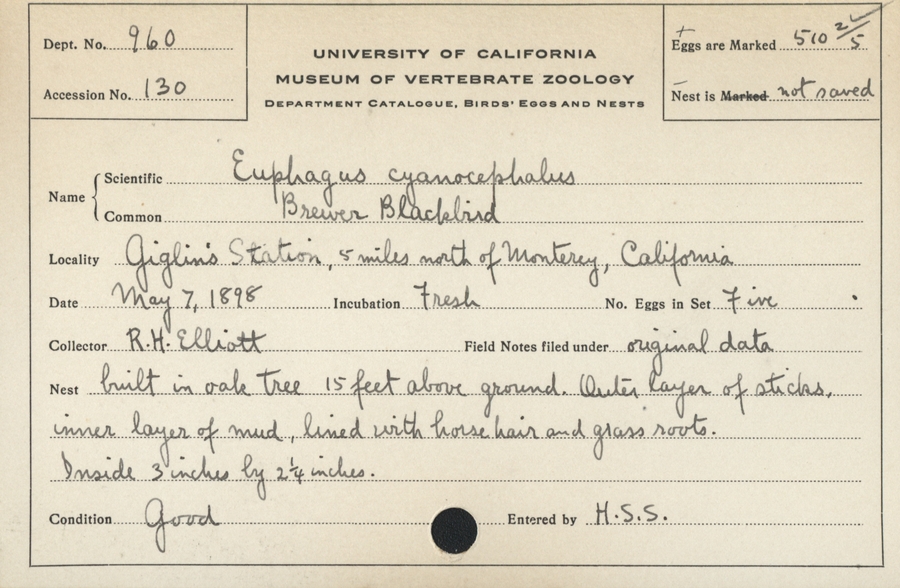 Dept. No. 960
Accession No. 130
UNIVERSITY OF CALIFORNIA
MUSEUM OF VERTEBRATE ZOOLOGY
DEPARTMENT CATALOGUE, BIRDS' EGGS AND NESTS
Eggs are Marked 510 2/5
Nest is Marked not saved
Name
Scientific Euphagus cyanocephalus
Common Brewer Blackbird
Locality Giglin's Station, 5 miles north of Monterey, California
Date May 7, 1898 Incubation Fresh No. Eggs in Set Five
Collector R.H. Elliott Field Notes filed under original data
Nest built in oak tree 15 feet above ground. Outer layer of sticks,
inner layer of mud, lined with horse hair and grass roots.
Inside 3 inches by 2¼ inches.
Condition Good Entered by H.S.S.